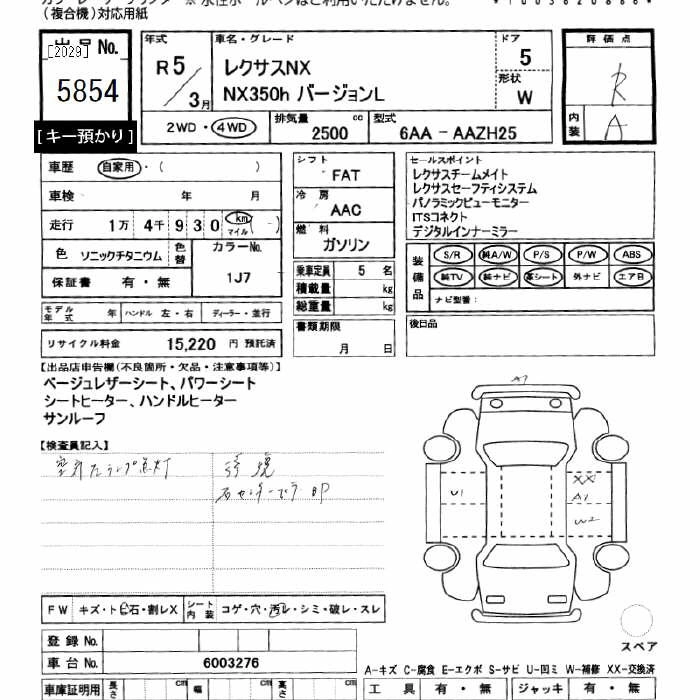 (複合機)対応用紙
出品No.
[2029]
5854
[キー預かり]
年式
R5/3月
車名・グレード
レクサスNX
NX350h バージョンL
ドア
5
形状
W
評価点
R
内装
A
2WD・4WD
排気量
2500 cc
型式
6AA - AAZH25
車歴 自家用・( )
車検 年 月
走行 1万 4千 9 3 0 km マイル ( - )
色 ソニックチタニウム 色替
カラーNo.
1J7
保証書 有・無
モデル年式 年 ハンドル 左・右 ディーラー・並行
リサイクル料金 15,220 円 預託済
シフト
FAT
冷房
AAC
燃料
ガソリン
乗車定員 5 名
積載量 kg
総重量 kg
書類期限
月 日
セールスポイント
レクサスチームメイト
レクサスセーフティシステム
パノラミックビューモニター
ITSコネクト
デジタルインナーミラー
装備品
S/R 純A/W P/S P/W ABS
純TV 純ナビ 革シート 外ナビ エアB
ナビ型番:
後日品
【出品店申告欄(不良箇所・欠品・注意事項等)】
ベージュレザーシート、パワーシート
シートヒーター、ハンドルヒーター
サンルーフ
【検査員記入】
A1
U1
XX
A1
W2
FW キズ・トビ石・割レX シート内装 コゲ・穴・汚レ・シミ・破レ・スレ
登録No.
車台No. 6003276
スペア
A-キズ C-腐食 E-エクボ S-サビ U-凹ミ W-補修 XX-交換済
車庫証明用 長さ cm 幅 cm 高さ cm
工具 有・無 ジャッキ 有・無